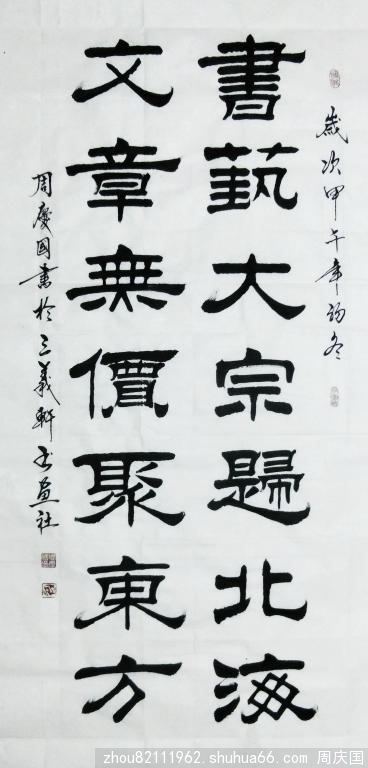 歲次甲午年初冬
書藝大宗歸北海
文章無價聚東方
周慶國書於三義軒书畫社
zhou82111962.shuhua66.com 周庆国